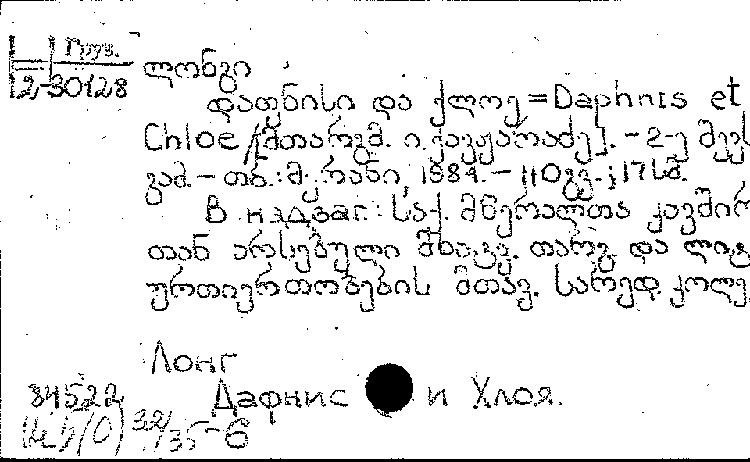 Груз.
2-30128
ლონგი
დაფნისი და ქლოე = Daphnis et
Chloe /[მთარგმ. ი. ქავჟარაძე]. - 2-ე შევს
გამ. - თბ.: მერანი, 1984. - 110გვ.; 17სმ.
В надзаг.: საქ. მწერალთა კავშირ
თან არსებული მხატვ. თარგ. და ლიტ
ურთიერთობების მთავ. სარედ. კოლე
Лонг
Дафнис и Хлоя.
84522
32/35-6